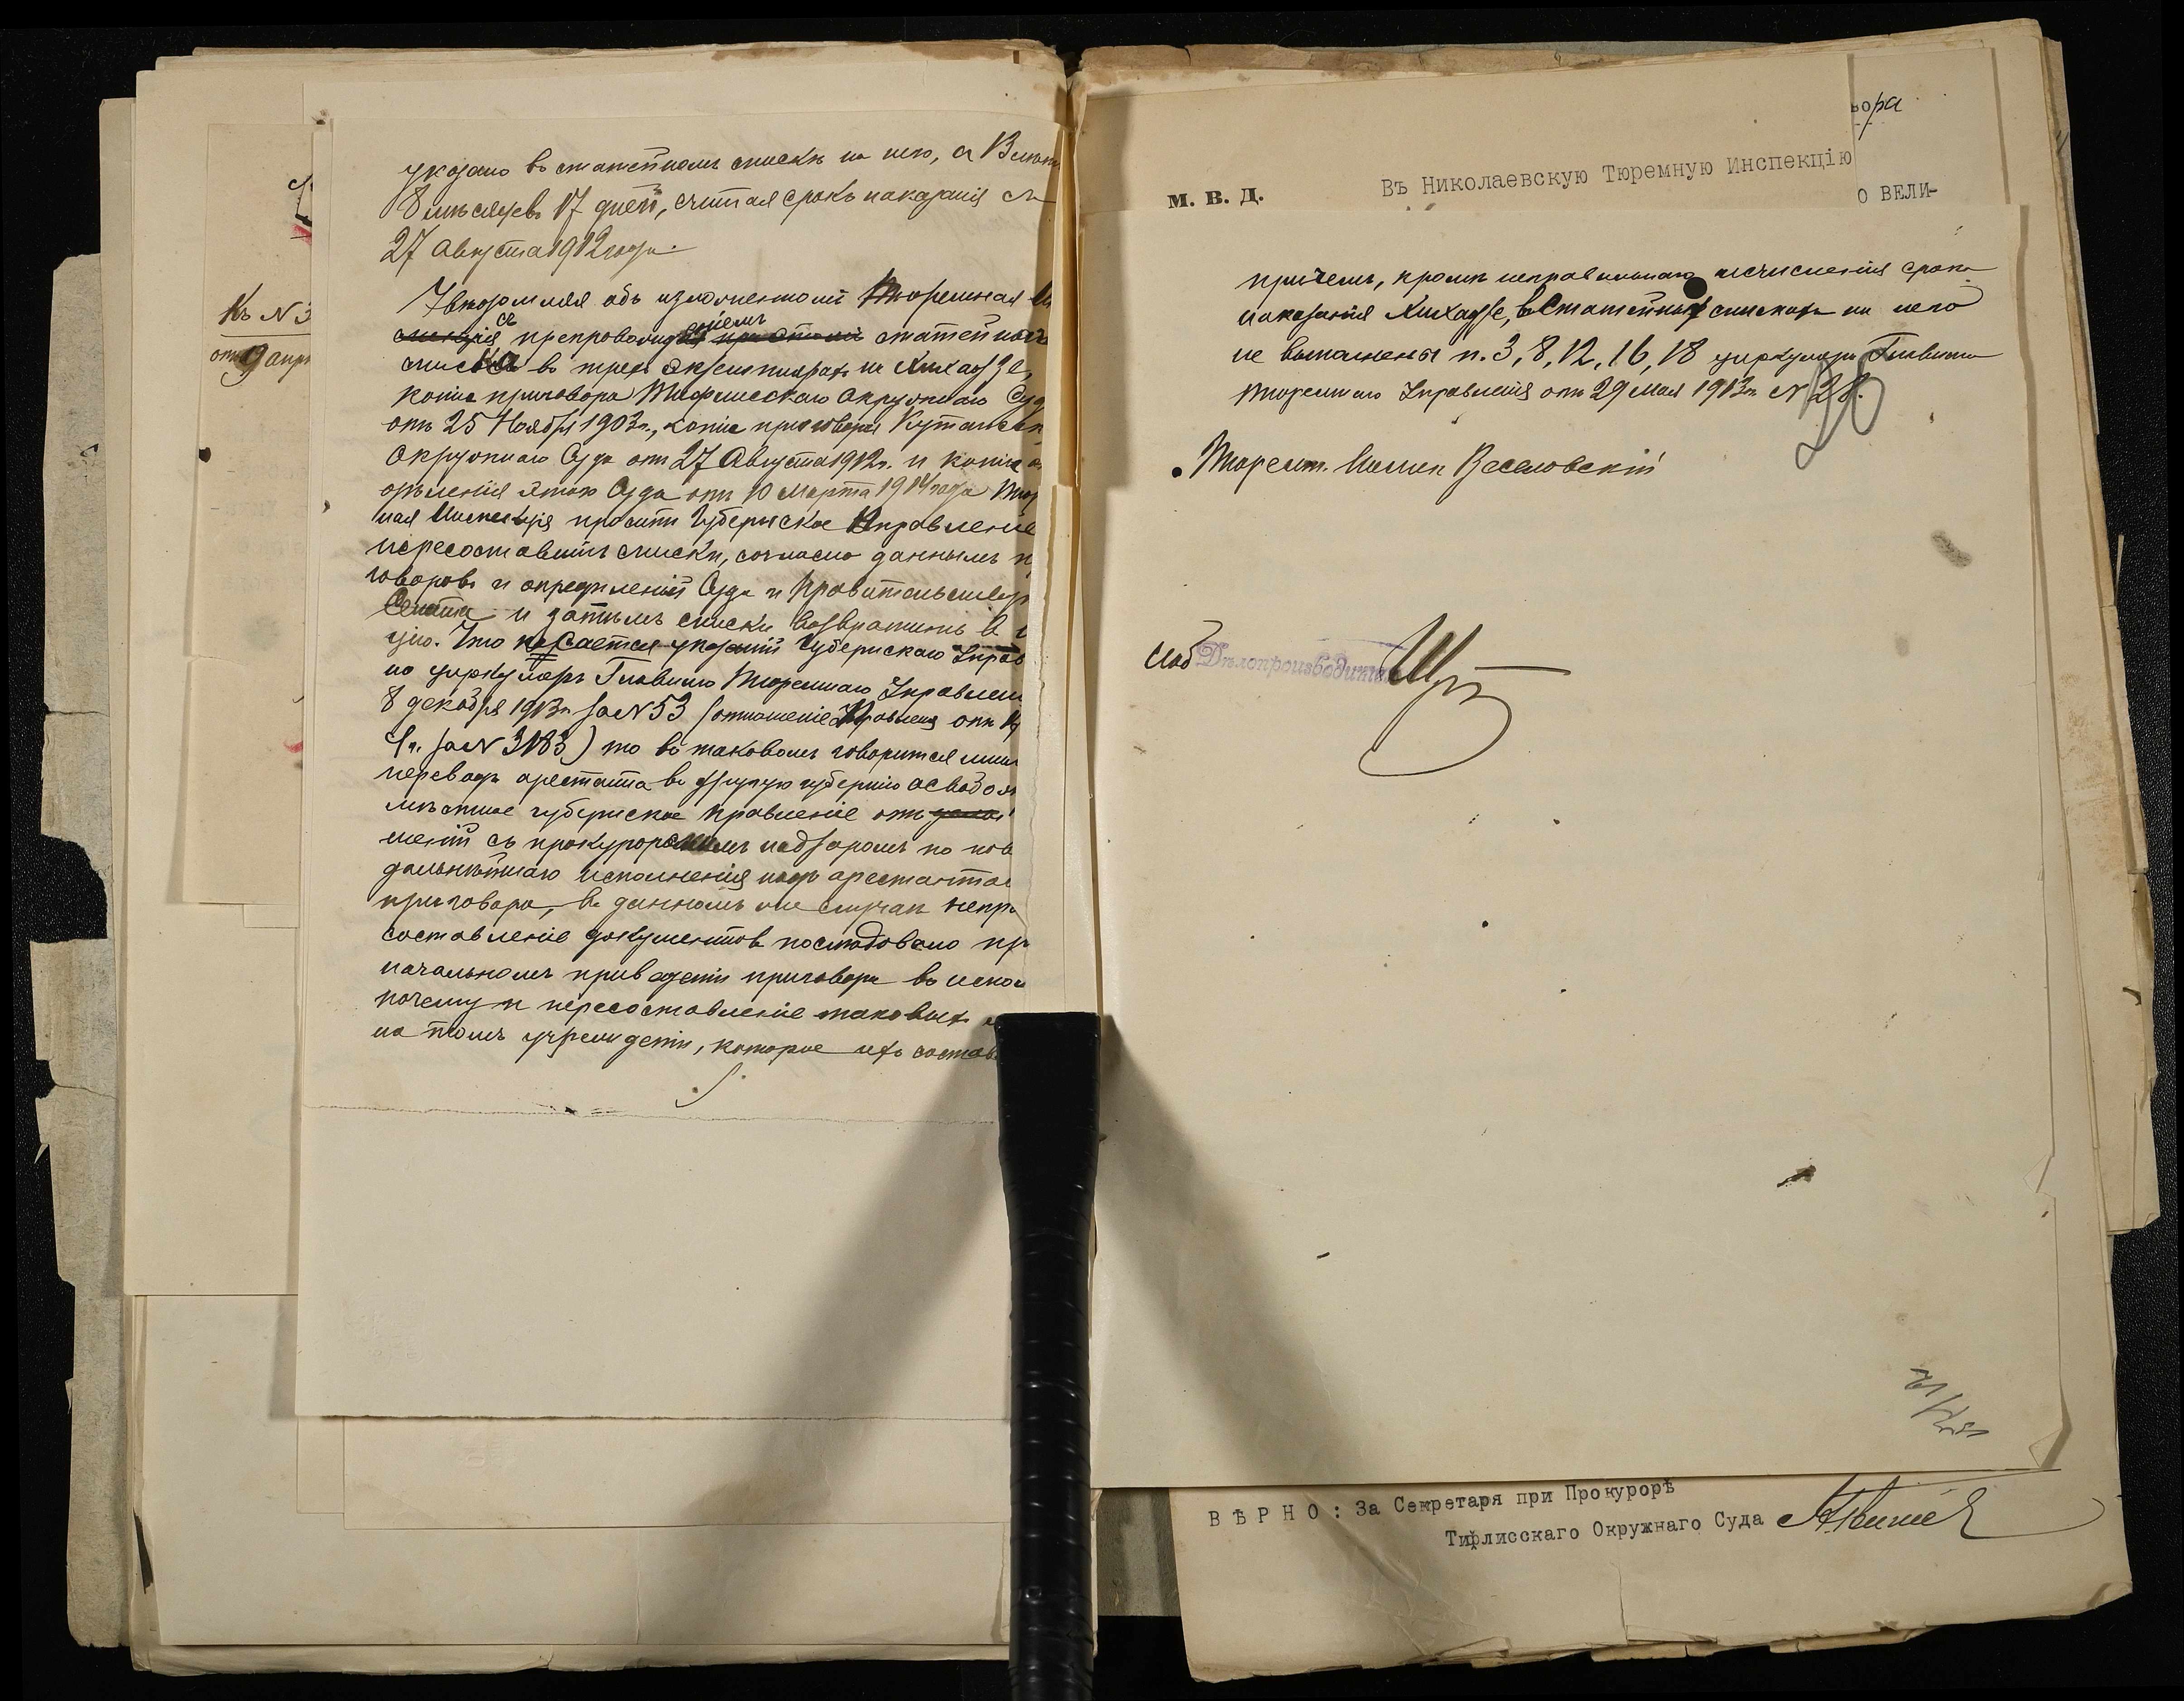 указано въ статейномъ спискѣ на него, а 8 лѣтъ
8 мѣсяцевъ 17 дней, считая срокъ наказанія съ
27 Августа 1912 года.
Увѣдомляя объ изложенномъ Тюремная Ин
спекція съ препровожденіемъ при этомъ статейнаго
списка въ трехъ экземплярахъ на Хихадзе,
копіи приговора Тифлисскаго Окружнаго Суд
отъ 25 Ноября 1903 г., копіи приговора Кутаисск
Окружнаго Суда отъ 27 Августа 1912 г. и копіи оп
редѣленія этого Суда отъ 10 Марта 1914 года Тюрем
ная Инспекція проситъ Губернское Правленіе
пересоставить списки, согласно даннымъ пр
говоровъ и опредѣленій Суда и Правительствую
Сената и затѣмъ списки возвратить въ И
цію. Что касается указаній Губернскаго Прав
на циркуляръ Главнаго Тюремнаго Управлен
8 декабря 1913 г. за N 53 (отношеніе Правленія отъ 19
с/г. за N 3183) то въ таковомъ говорится лишь
переводъ арестанта въ другую губернію освобож
мѣстное губернское правленіе отъ
шеній съ прокурорскимъ надзоромъ по пов
дальнѣйшаго исполненія надъ арестантом
приговора, въ данномъ же случаѣ непра
составленіе документовъ послѣдовало пр
начальномъ приведеніи приговора въ испол
почему и пересоставленіе таковыхъ
на томъ учрежденіи, которое ихъ состав
Къ N 3
отъ 9 апр
вора
М. В. Д.
Въ Николаевскую Тюремную Инспекцію
О ВЕЛИ-
причемъ, кромѣ неправильнаго исчисленія срока
наказанія Хихадзе, въ статейныхъ спискахъ на него
не выполнены п. 3, 8, 12, 16, 18 циркуляра Главнаго
Тюремнаго Управленія отъ 29 Мая 1913 г. N 28.
Тюремн. Инспек Веселовскій
Дѣлопроизводитель
ВѢРНО: За Секретаря при Прокурорѣ
Тифлисскаго Окружнаго Суда